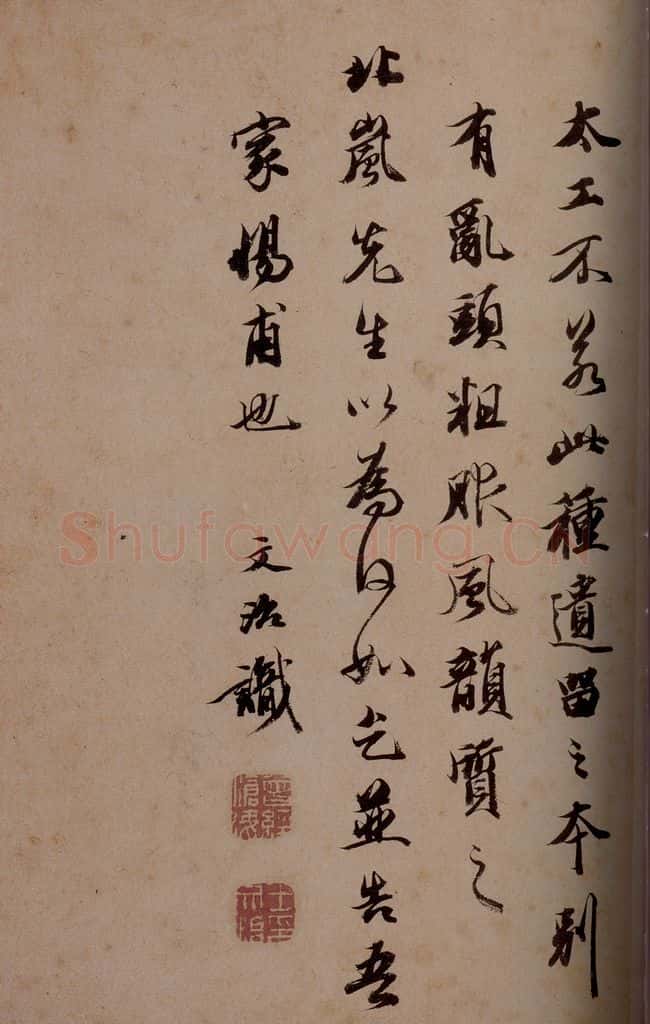 太工不若此種遺留之本別
有亂頭粗服風韻質之
北嵐先生以為何如乞並告吾
家惕甫也
文治識
曾經滄海
Shufawang.CN